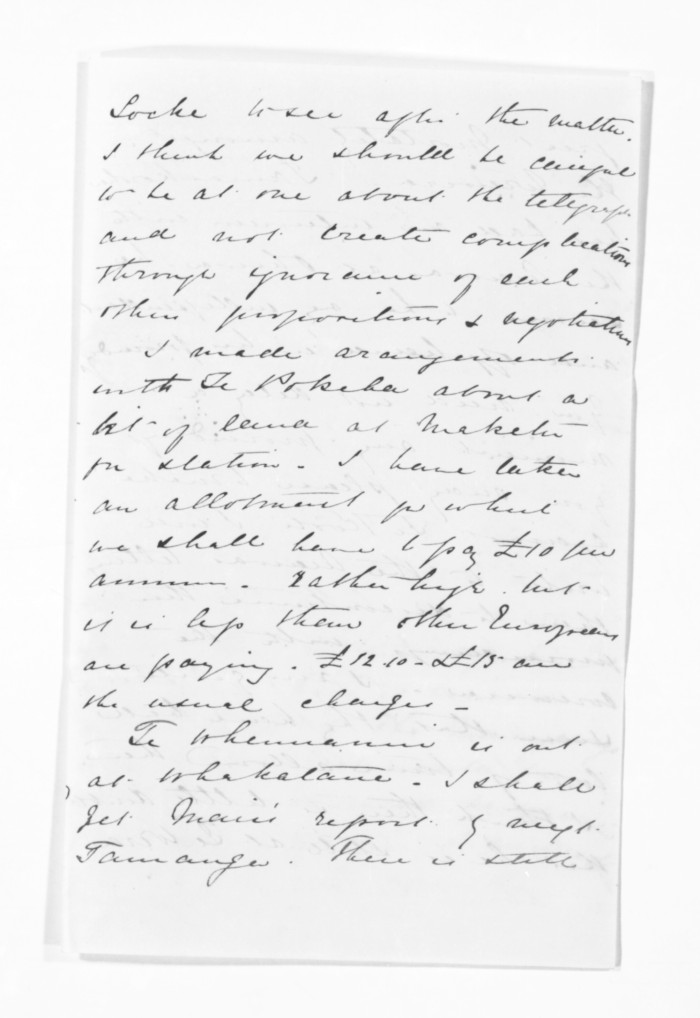 Locke to see after the matter.
I think we should be careful
to be at one about the telegraph
and not create complications
through ignorance of each
others propositions & negotiations
I made arangements
with Te Pokeha about a
bit of land at Maketu
for station - I have taken
an allotment for which
we shall have to pay £10 per
annum - rather high but
it is less than other Europeans
are paying. £12.10 - & £15 are
the usual charges -
Te Whenuanui is out
at Whakatane - I shall
get Mair's report by next
Tauranga. There is still